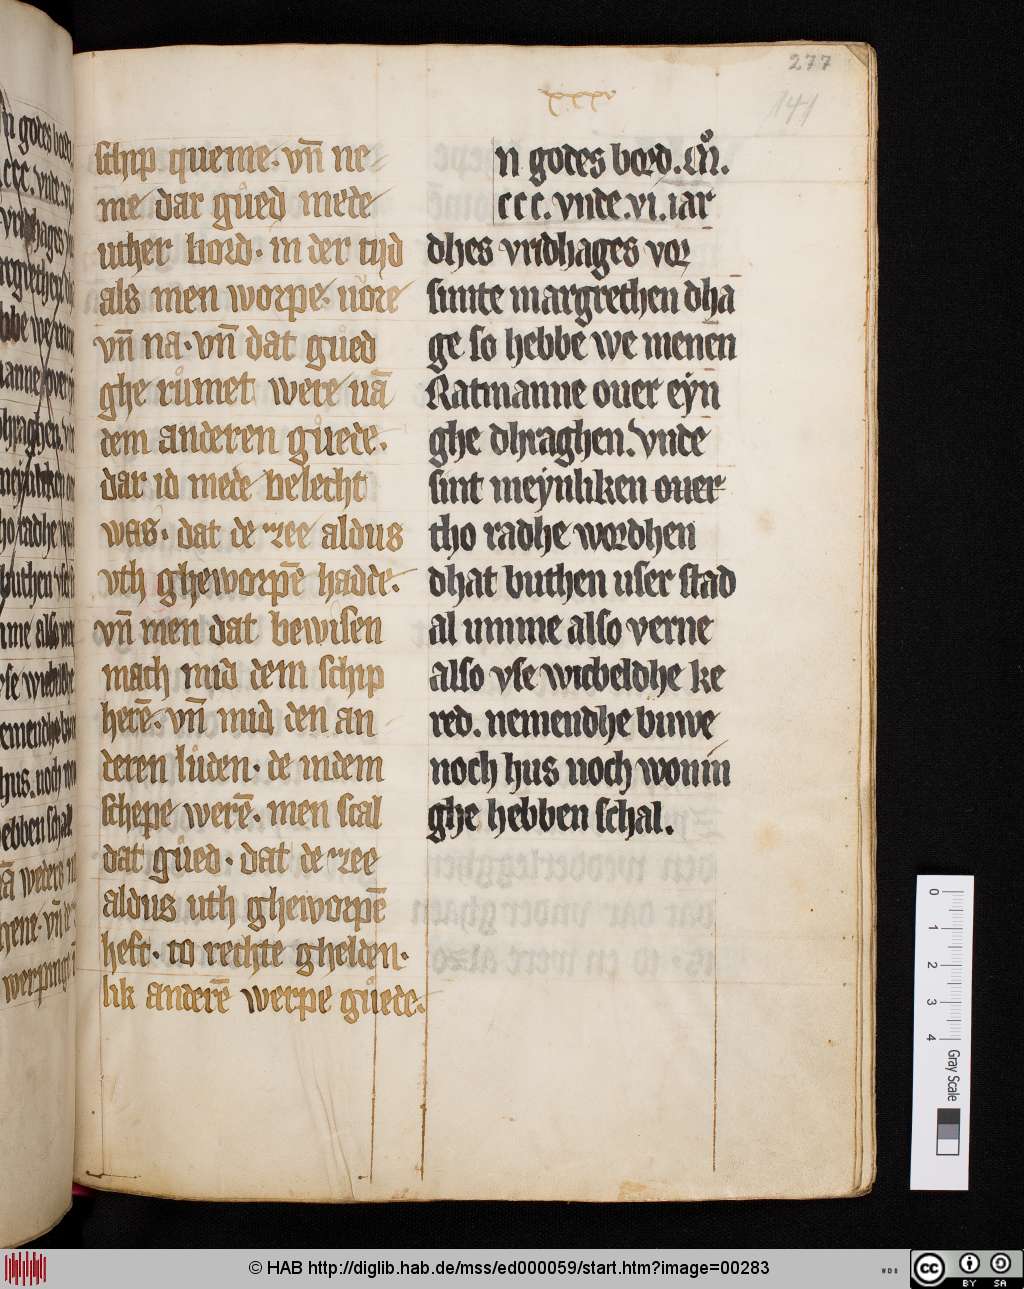 277
xxxv
141
schip queme. vn̄ ne-
me dar gůed mede
uther bord. in der tijd
als men worpe. uŏre
vn̄ na. vn̄ dat gůed
ghe růmet were uā
dem anderen gůede.
dar id mede belecht
was. dat de ree aldus
vth gheworpē hadde.
vn̄ men dat bewisen
mach mid dem schip
herē. vn̄ mid den an
deren lůden. de indem
schepe werē. men scal
dat gůed. dat de ree
aldus uth gheworpē
heft. to rechte ghelden.
lik anderē werpe gůede.
n godes bord. M̊.
ccc. vnde. vi. iar
dhes vridhages vor
sunte margrethen dha
ge so hebbe we menen
Ratmanne ouer eyn
ghe dhraghen. vnde
sint meynliken ouer
tho radhe wordhen
dhat buthen user stad
al umme also verne
also vse wicbeldhe ke
red. nemendhe buwe
noch hus noch wonin
ghe hebben schal.
0
1
2
3
4
Gray Scale
© HAB http://diglib.hab.de/mss/ed000059/start.htm?image=00283
cc BY SA